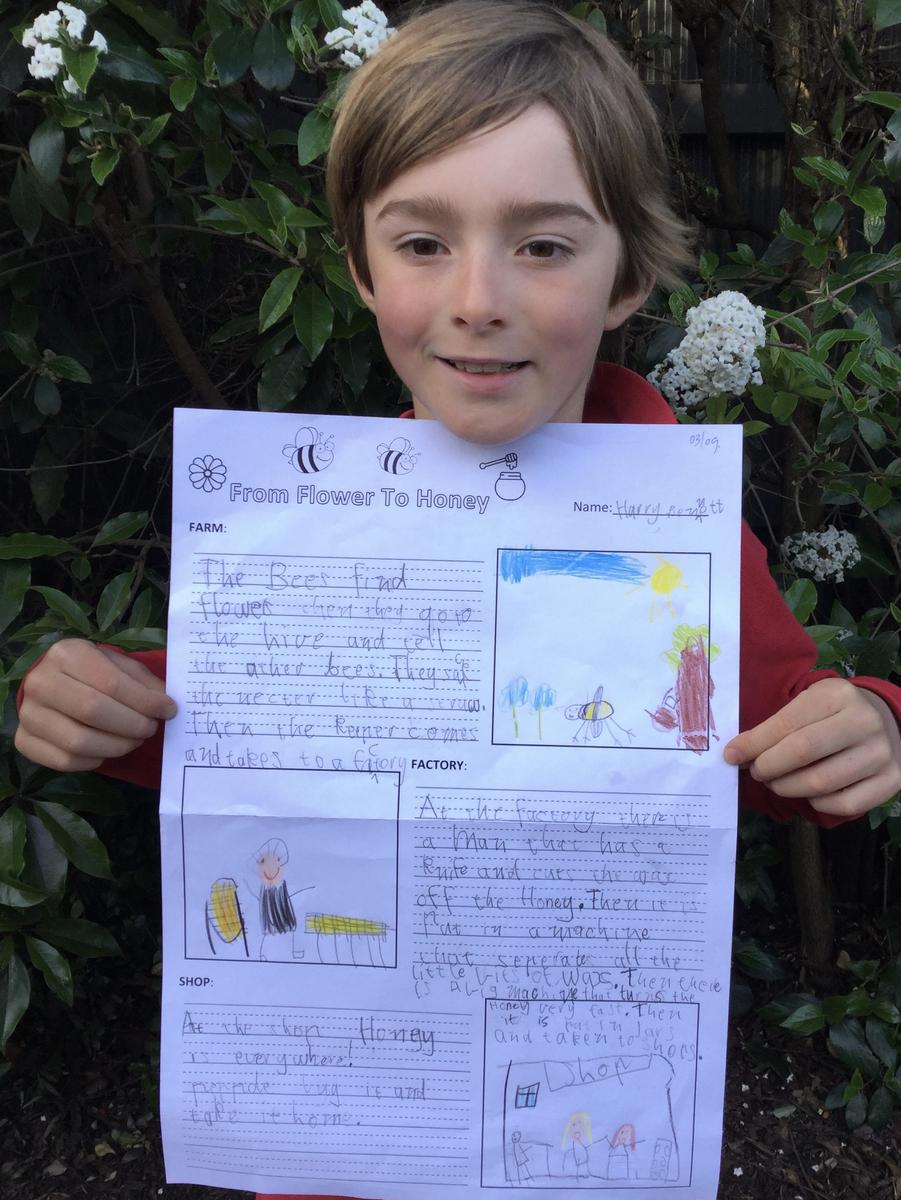 03/09
From Flower To Honey
Name: Harry
FARM:
The Bees find
flower then they go to
the hive and tell
the other bees. They
the necter like a straw.
Then the comes
and takes to a fctory
FACTORY:
At the factory there is
a Man that has a
Knife and cuts the wax
off the Honey. Then it is
Put in a machine
that seperates all the
little bits of wax. Then there
is a big machine that turns the
Honey very fast. Then
it is put in Jars
and taken to shops.
SHOP:
At the shop Honey
is everywhere!
buy it and
take it home.
Shop